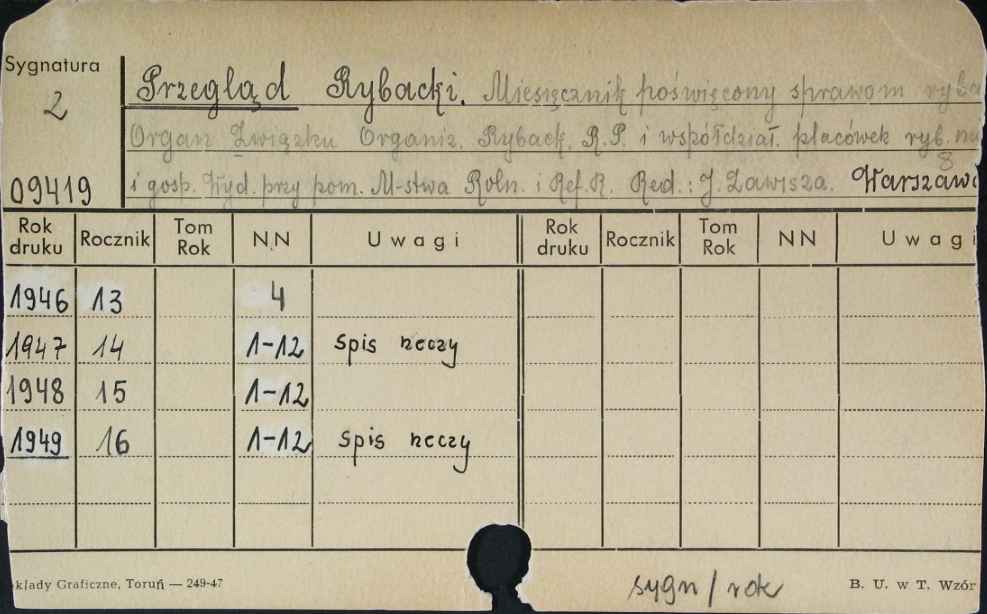 Sygnatura
2
09419
Przegląd Rybacki. Miesięcznik poświęcony sprawom ryba
Organ Związku Organiz. Ryback. R.P. i współdział. placówek ryb. na
i gosp. Wyd. przy pom. M-stwa Roln. i Ref. R. Red.: J. Zawisza. Warszawa
Rok druku Rocznik Tom Rok N.N Uwagi Rok druku Rocznik Tom Rok NN Uwagi
1946 13 4
1947 14 1-12 spis rzeczy
1948 15 1-12
1949 16 1-12 spis rzeczy
kłady Graficzne, Toruń — 249-47
sygn / rok
B. U. w T. Wzór